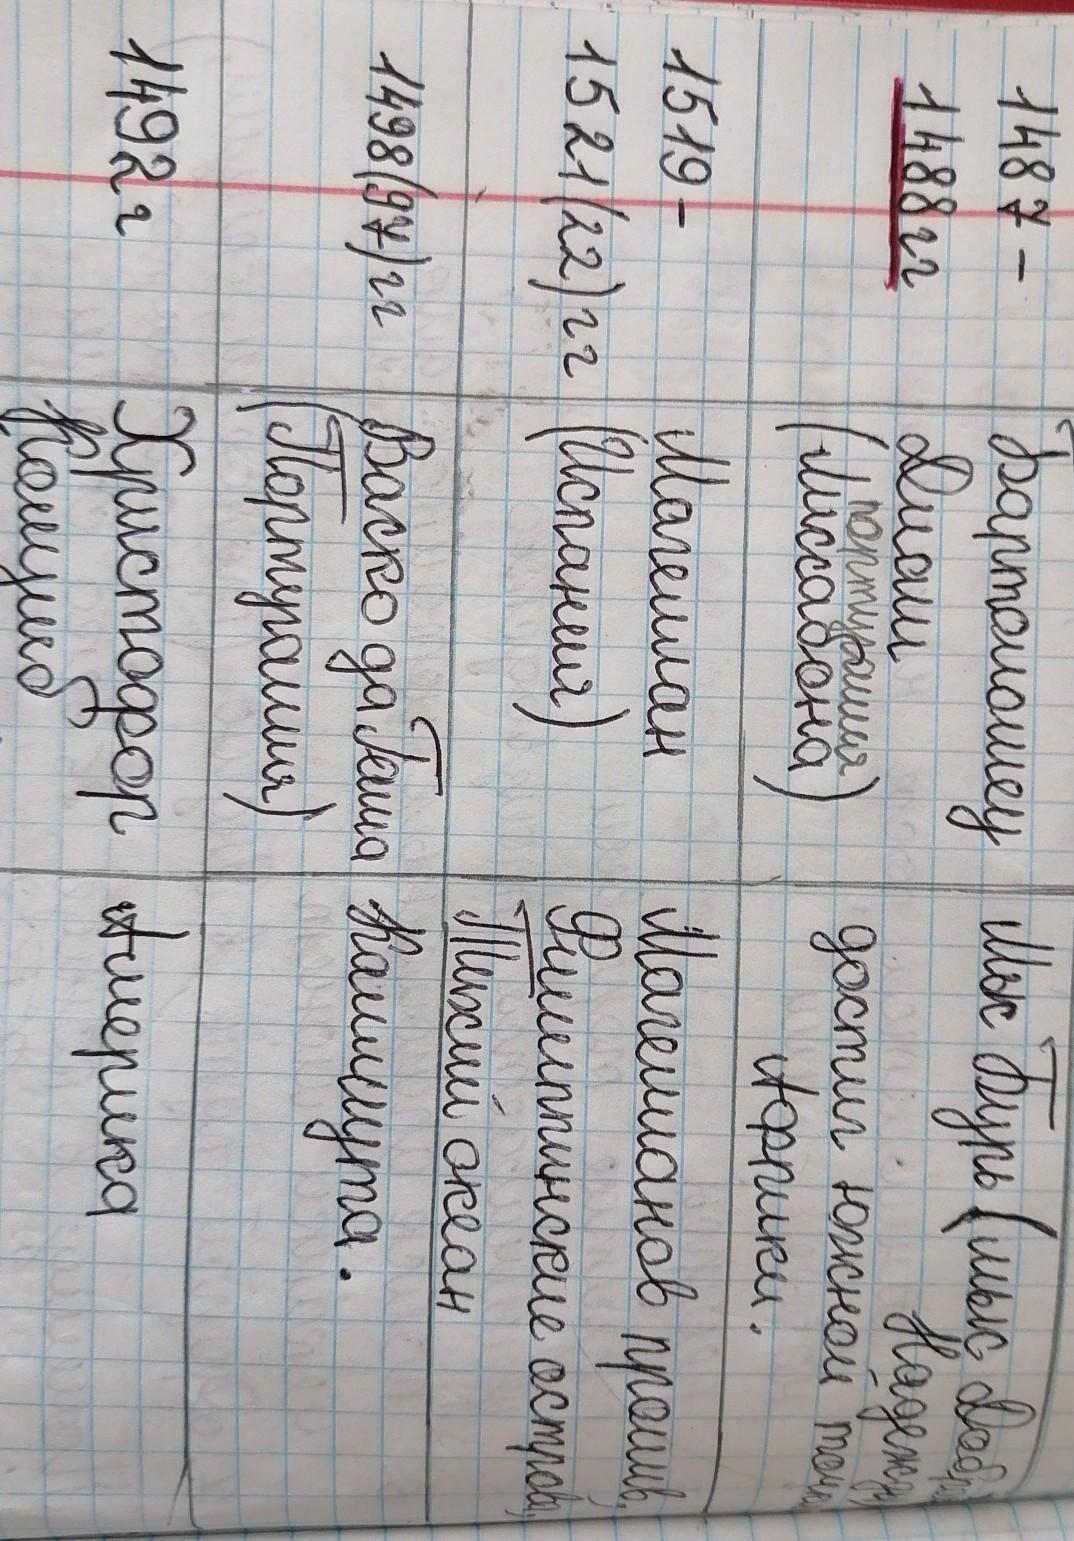 1487-
1488гг
Бартоломеу
Диаш
(португалия
Лиссабона)
Мыс Бурь (мыс Доброй
Надежды
достиг южной точки
Африки.
1519-
1521(22)гг
Магеллан
(Испания)
Магелланов пролив,
Филиппинские острова,
Тихий океан
1498(97)гг
Васко да Гама
(Португалия)
Калькута.
1492г
Христофор
Колумб
Америка